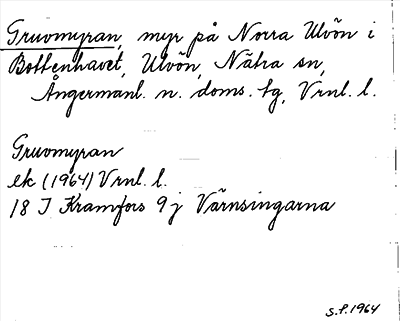 Gruvmyran, myr på Norra Ulvön i
Bottenhavet, Ulvön, Nätra sn,
Ångermanl. n. doms. tg, Vrnl. l.
Gruvmyran
ek (1964) Vrnl. l.
18 I Kramfors 9 j Värnsingarna
S.f. 1964